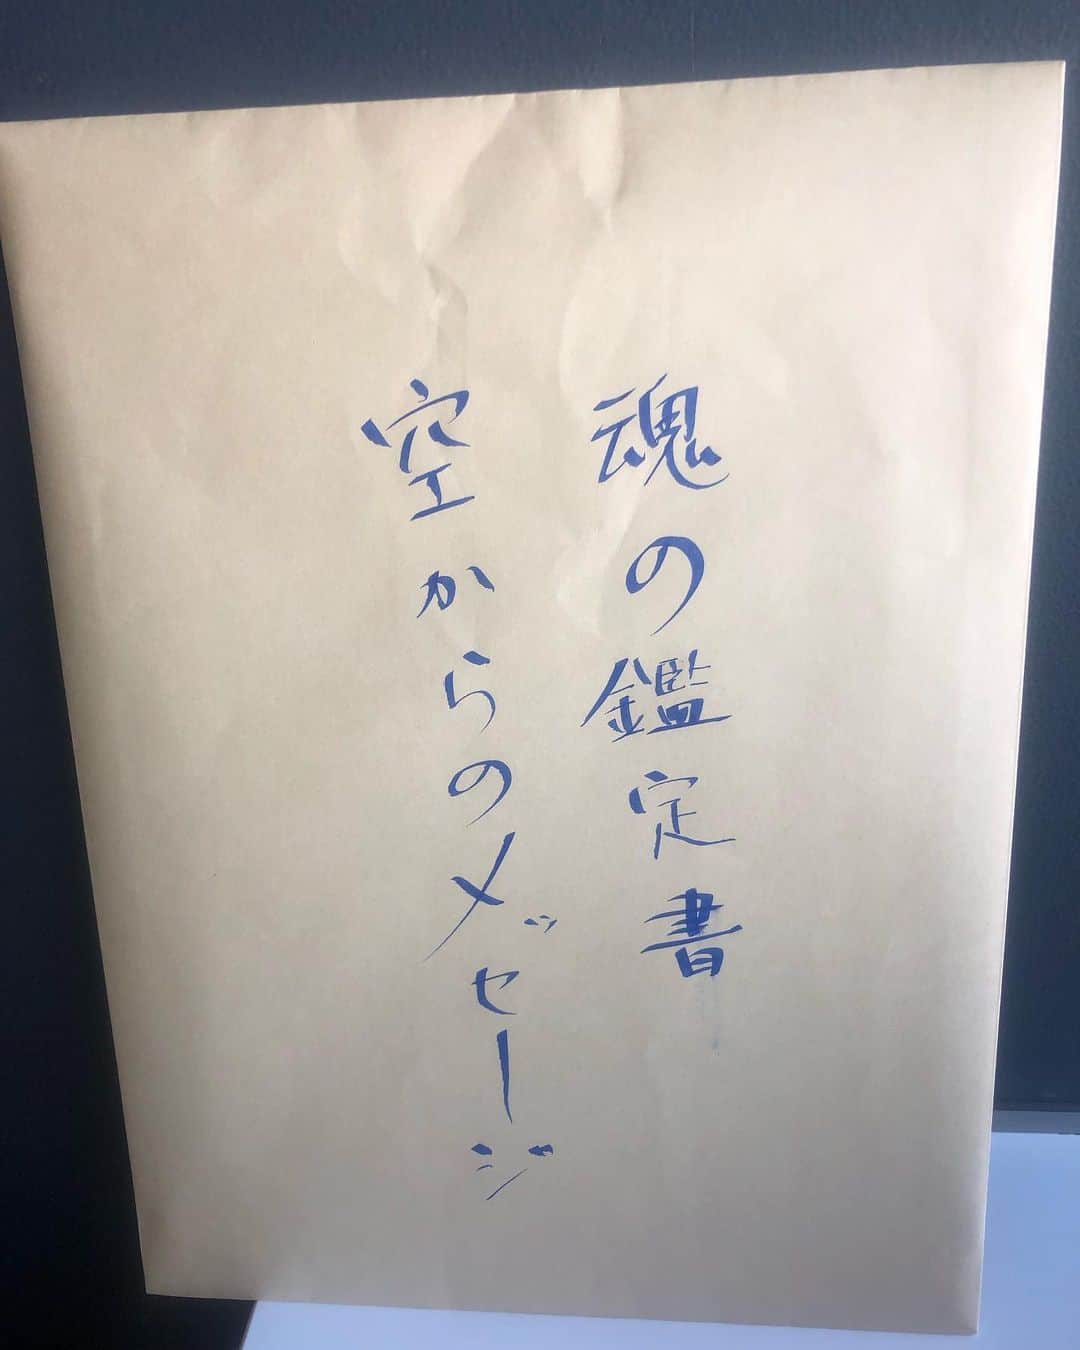 魂の鑑定書
空からのメッセージ